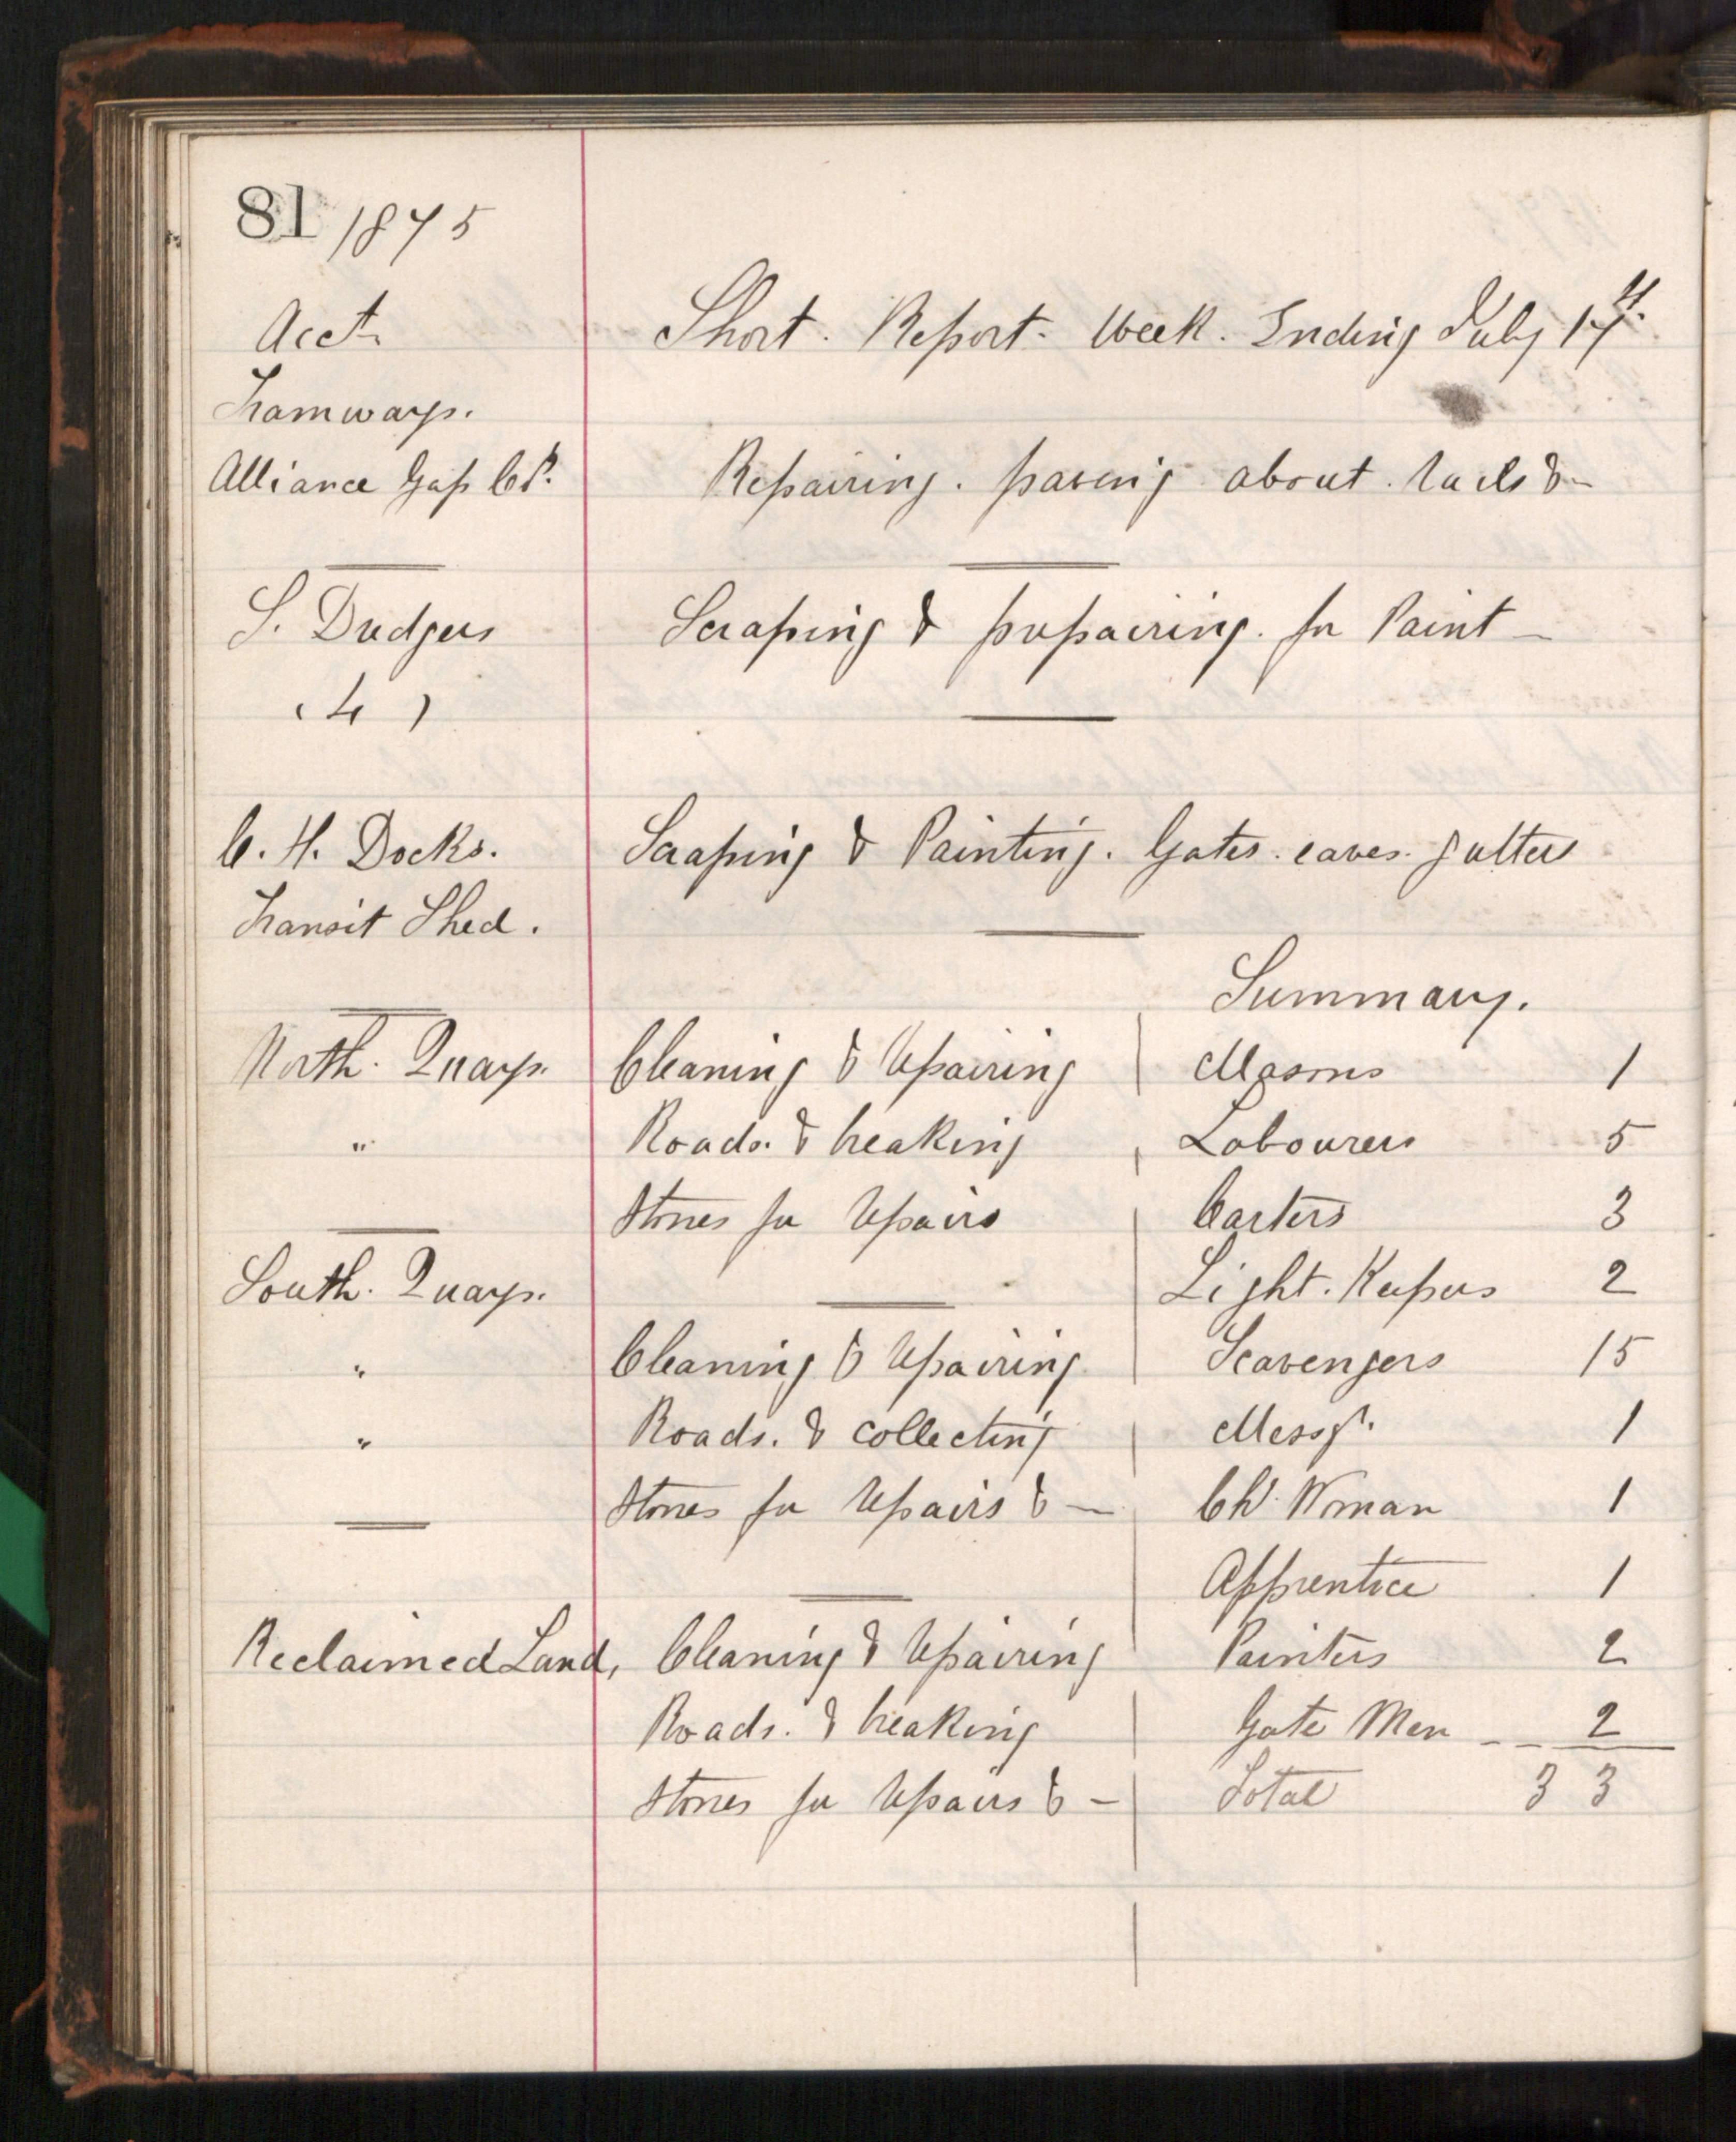 81 1875
Acct. Short. Report. Week. Ending July 17th.
Tramways.
Alliance Gas Co. Repairing. paving about. rails &-
S. Dredgers Scraping & prepairing. for Paint -
(4)
C. H. Docks. Scraping & Painting. Gates. eaves. gutters
Transit Shed.
Summary.
North. Quays. Cleaning & repairing Masons 1
" Roads. & breaking Labourers 5
Stones for repairs Carters 3
South. Quays. Light. Keepers 2
" Cleaning & repairing Scavengers 15
" Roads. & collecting Messgr. 1
Stones for repairs &- Ch. Woman 1
Apprentice 1
Reclaimed Land, Cleaning & repairing Painters 2
Roads. & breaking Gate Men -- 2
Stones for repairs &- Total 33